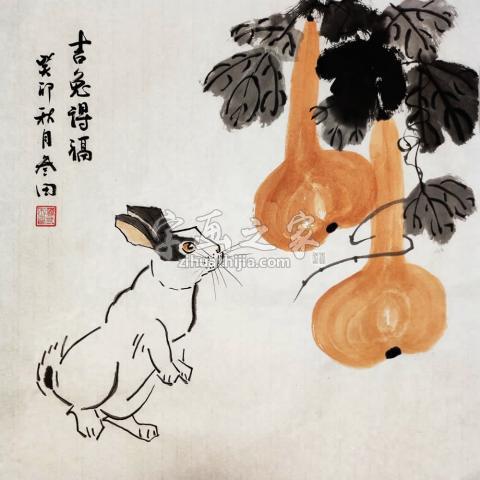 吉兔得福
癸卯秋月冬田
字画之家
zihuazhijia.com